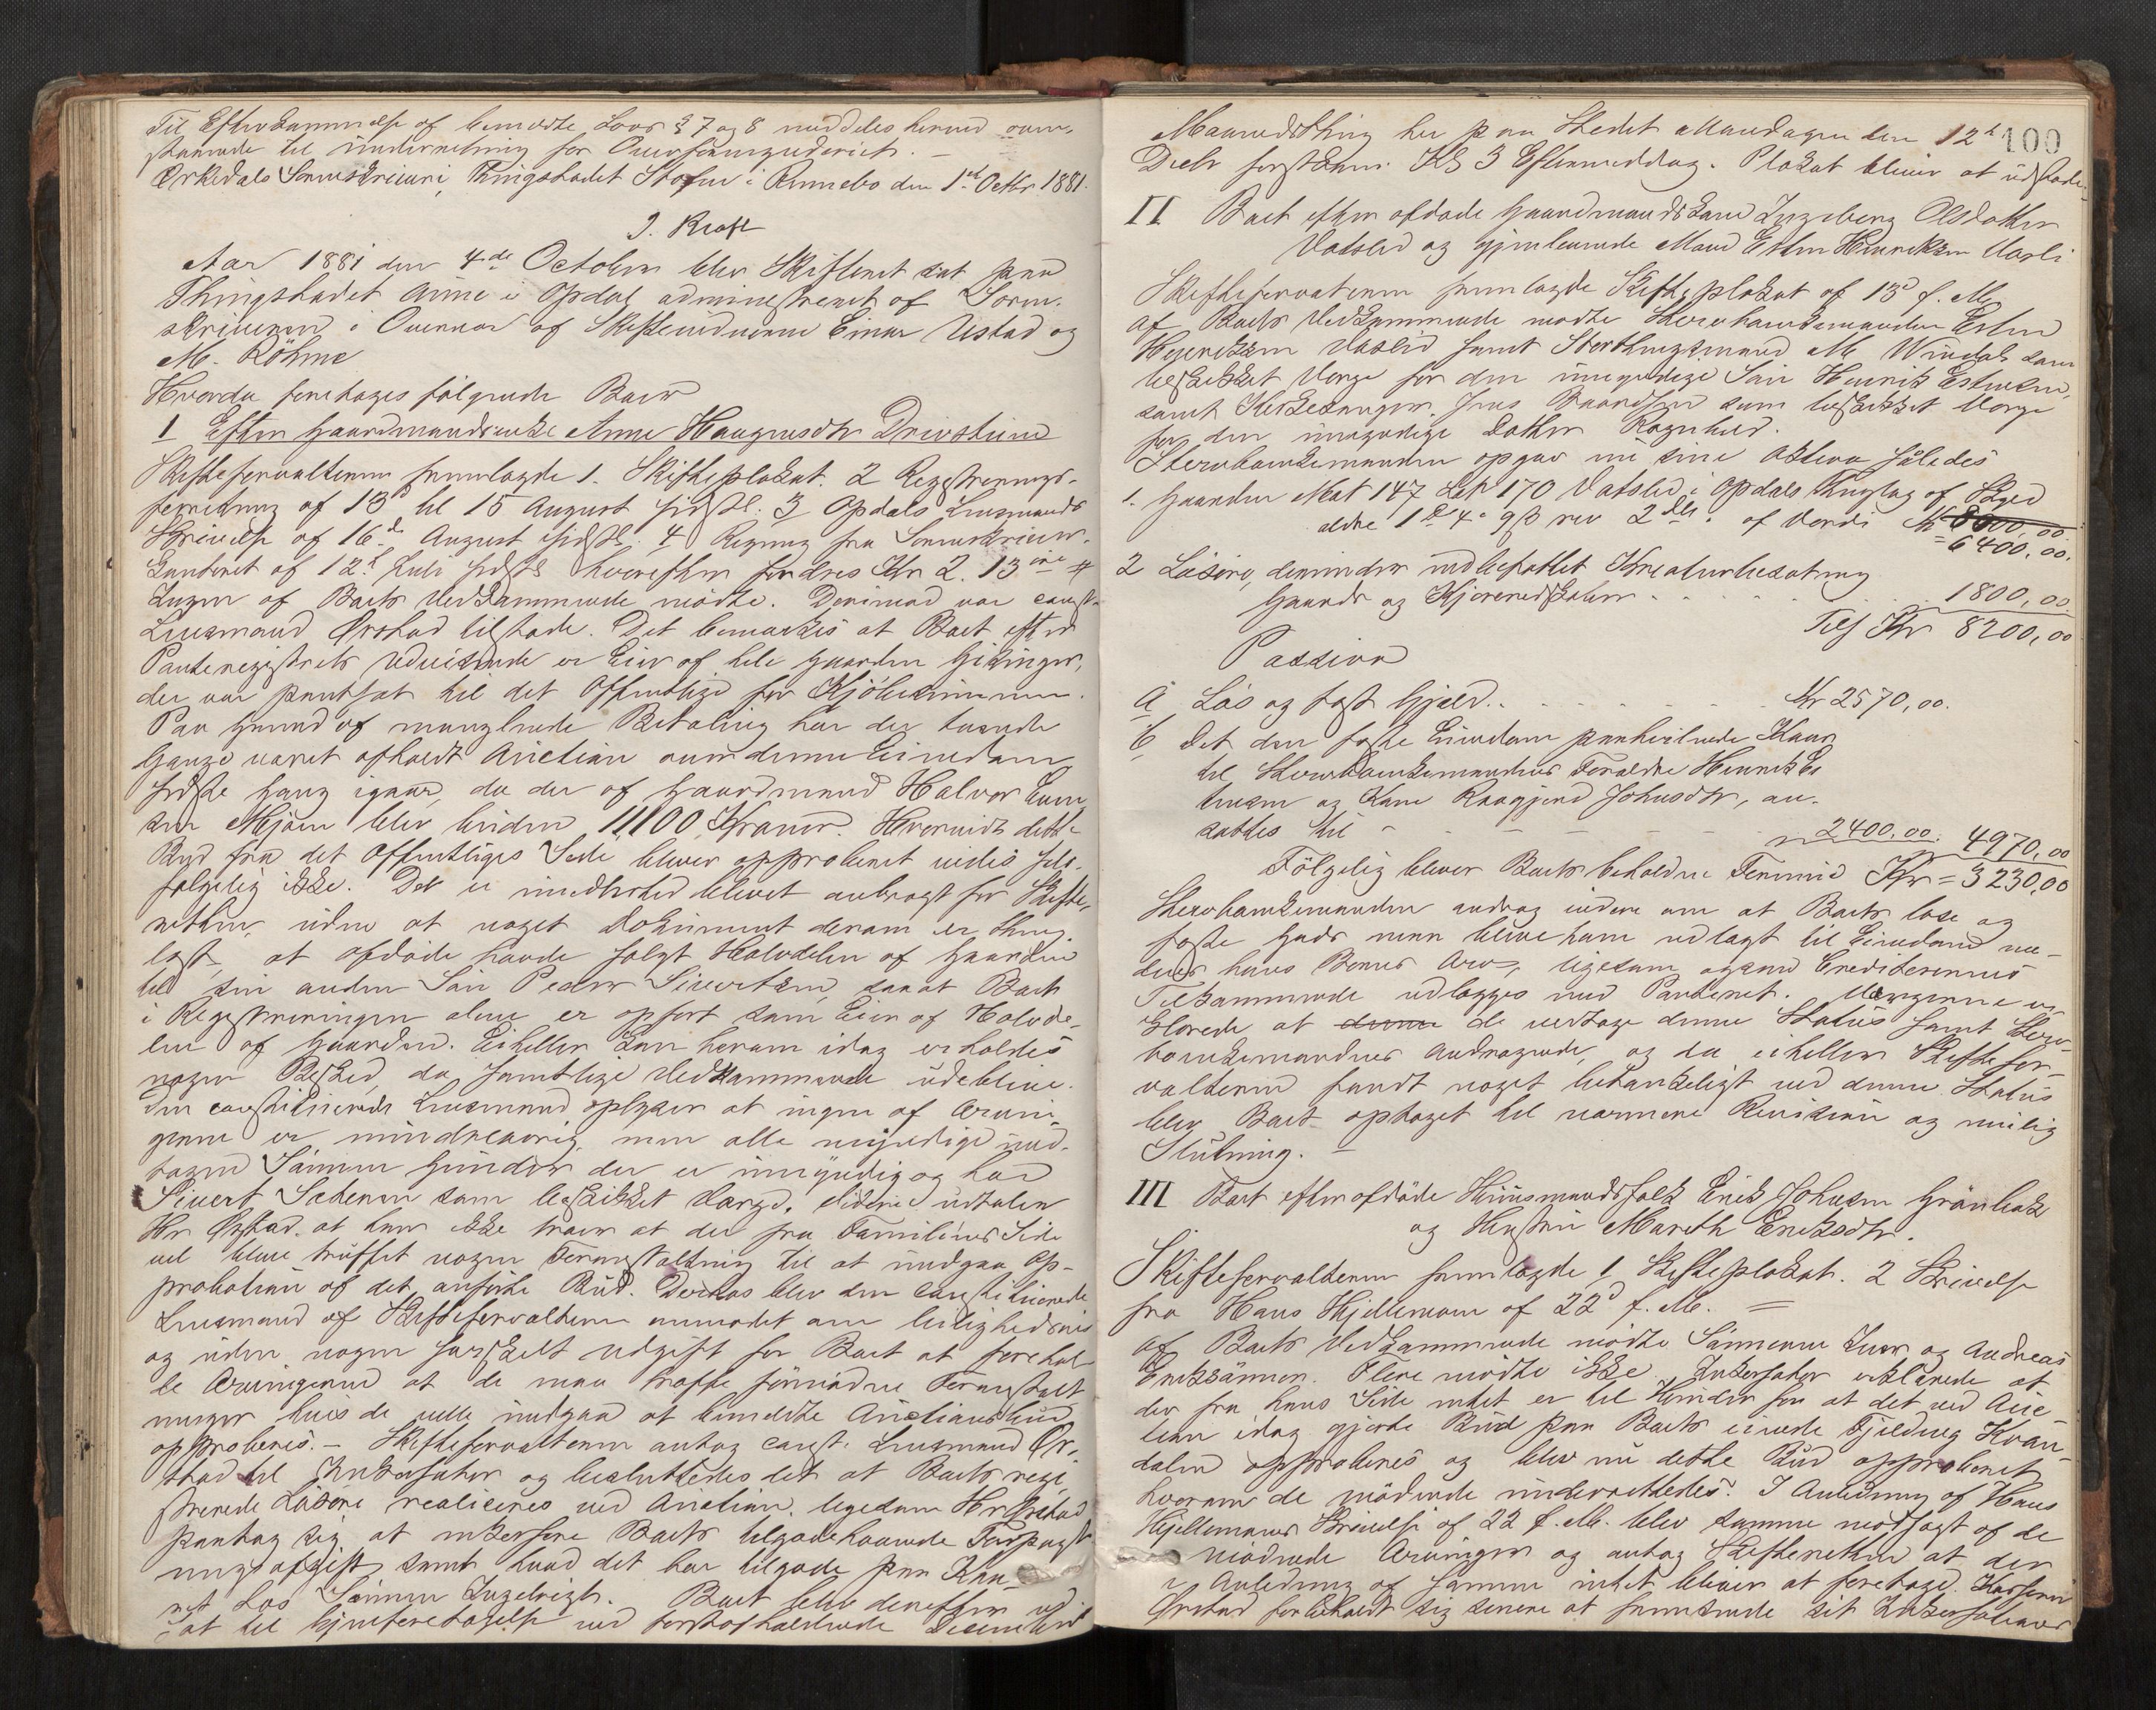 Til Efterkommelse af bemeldte Lovs § 7 og 8 meddeles herved oven-
staaende til Underretning for Overformynderiet. –
Orkedals Sorenskriveri, Thingstedet Stofen i Rennebo den 1ste Octbr 1881.
J. Kraft
Aar 1881 den 4de October blev Skifteret sat paa
Thingstedet Aune i Opdal administreret af Soren-
skriveren i Overvær af Skiftevidnerne Einar Ustad og
M. Röhme
Hvorda foretoges følgende Boer
1 Efter Gaardmandsenke Anne Haugensdtr Drivstuen
Skifteforvalteren fremlagde 1. Skifteplakat. 2 Registrerings-
forretning af 13d til 15 August sidstl: 3 Opdals Lensmands
Skrivelse af 16de August sidstl. 4 Regning fra Sorenskriver-
kontoret af 12t Juli sidstl hvorefter fordres Kr 2. 13 øre
Ingen af Boets Vedkommende mødte. Derimod var const.
Lensmand Ørstad tilstede. Det bemærkes at Boet efter
Panteregistrets Udvisende er Eier af hele Gaarden Gisinger,
der var pantsat til det Offentlige for Kjöbesummen.
Paa Grund af manglende Betaling har der tvende
Gange været afholdt Auction over denne Eiendom
sidste Gang igaar, da der af Gaardmand Halvor Lien
sen Mjøen blev buden 11100 Kroner. Hvorvidt dette
Bud fra det Offentliges Side bliver approberet vides selv-
følgelig ikke. Det er imidlertid blevet anbragt for Skifte-
retten, uden at noget Dokument derom er thing-
læst, at afdøde havde solgt Halvdelen af Gaarden
til sin anden Søn Peder Sivertsen, saa at Boet
i Registreringen alene er opført som Eier af Halvde-
len af Gaarden. Eiheller kan herom idag erholdes
nogen Besked, da samtlige Vedkommende udeblive.
Den constituerede Lensmand oplyser at ingen af Arvin-
gerne er mindreaarig, men alle myndige und-
tagen Sønnen Gunder der er umyndig og har
Sivert Sæteren som beskikket Værge. Videre udtaler
Hr Ørstad. at han ikke troer at der fra Familiens Side
vil blive truffet nogen Foranstaltning til at undgaa Ap-
probation af det anførte Bud. Derhos blev den constituerede
Lensmand af Skifteforvalteren anmodet om leilighedsvis
og uden nogen særskilt Udgift for Boet at forehol-
de Arvingerne at de maa træffe fornødne Foranstalt
ninger hvis de ville undgaa at bemeldte Auctionsbud
approberes. – Skifteforvalteren antog const. Lensmand Ør-
stad til Inkassator og besluttedes det at Boets regi-
strerede Løsøre realiseres ved Auction. ligesom Hr Ørstad
paatog sig at inkassere Boets tilgodehavende Forpagt-
ningsafgift samt hvad det har tilgode paa Kaa-
ret hos Sønnen Ingebrigt. Boet blev derefter ud-
sat til Gjenforetagelse ved førstafholdende December
100
Maanedsthing her paa Stedet Mandagen den 12te
Decbr førstkom. Kl 3 Eftermiddag. Plakat bliver at udstede.
II Boet efter afdøde Gaardmandskone Ingeborg Olsdatter
Vatslid og gjenlevende Mand Esten Henriksen Vasli
Skifteforvalteren fremlagde Skifteplakat af 13d f. M.
Af Boets Vedkommende mødte Stervboenkemanden Esten
Henriksen Vatslid samt Storthingsmand M Windal som
beskikket Værge for den umyndige Søn Henrik Estensen,
samt Kirkesanger Jens Baardsgn som beskikket Værge
for den umyndige Datter Ragnhild.
Stervboenkemanden opgav nu sine Aktiva således
1. Gaarden Mat 147 Løb 170 Vatslid i Opdals thinglag af Skyld
ældre 1 4 9ß rev 2 dlr. af Værdi Kr 8000,00
= 6400,00.
2 Løsøre, derunder indbefattet Kreaturbesætning
Gaards og Kjøreredskaber . . . . . 1800,00
Tils Kr 8200,00
Passiva
a Løs og fast Gjæld. . . . . . Kr 2570,00.
b Det den faste Eiendom paahvilende Kaar
til Stervboenkemandens Forældre Henrik Es
tensen og Kone Ragnhild Johnsdtr, an-
sættes til – – – – – " 2400,00. 4970,00
Følgelig bliver Boets beholdne Formue Kr = 3230,00
Stervboenkemanden androg videre om at Boets løse og
faste Gods maa blive ham udlagt til Eiendom me-
dens hans Børns Arv, ligesom ogsaa Creditorernes
Tilkommende udlægges med Panteret. Værgerne er-
klærede at denne de vedtage denne Status samt Sterv-
boenkemandens Andragende, og da eiheller Skiftefor-
valteren fandt noget betænkeligt ved denne Status
blev Boet optaget til nærmere Revision og mulig
Slutning. –
III Boet efter afdøde Huusmandsfolk Erik Johnsen Grønbak
og Hustru Mareth Eriksdtr.
Skifteforvalteren fremlagde 1 Skifteplakat. 2 Skrivelse
fra Hans Hjellemoen af 22d f. M. =
Af Boets Vedkommende mødte Sønnerne Iver og Andreas
Erikssønner. Flere mødte ikke. Inkassator erklærede at
der fra hans Side intet er til Hinder for at det ved Auc-
tion idag gjorte Bud paa Boets eiende Fjeldveg Kvan-
dalen approberes og blev nu dette Bud approberet
hvorom de mødende underrettedes. I Anledning af Hans
Hjellemoens Skrivelse af 22 f. M. blev samme modsagt af de
mødende Arvinger og antog Skifteretten at der
i Anledning af samme intet bliver at foretage. Kasserer
Ørstad forbeholdt sig senere at fremsende sit Inkassations